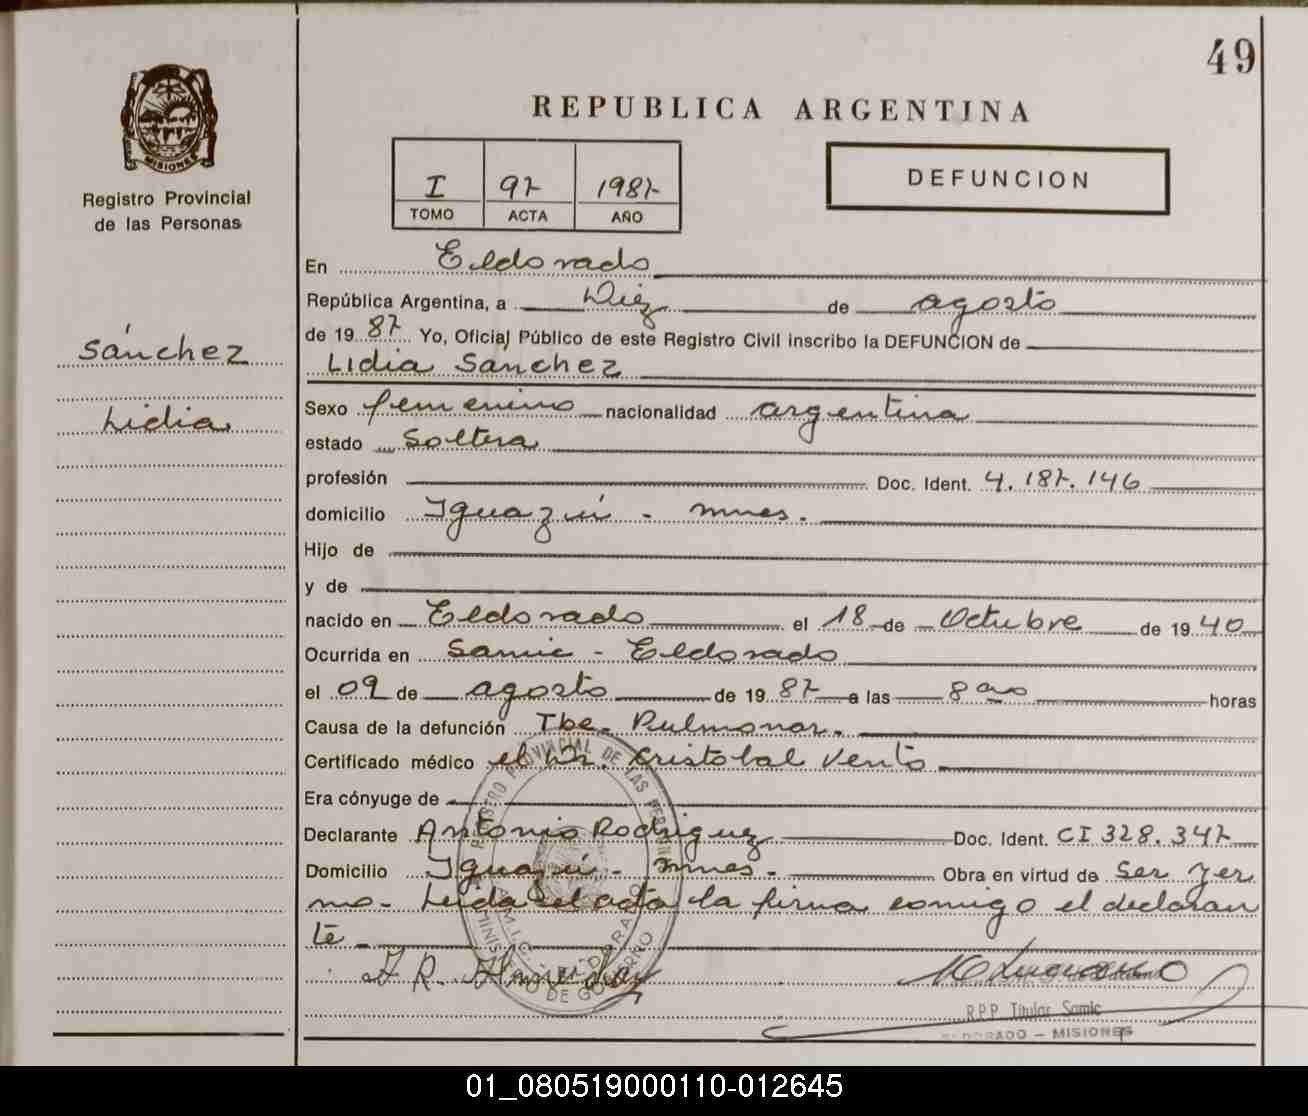 49
MISIONES
Registro Provincial
de las Personas
Sánchez
Lidia
REPUBLICA ARGENTINA
I 97 1987
TOMO ACTA AÑO
DEFUNCION
En Eldorado
República Argentina, a Diez de agosto
de 19 87 Yo, Oficial Público de este Registro Civil inscribo la DEFUNCION de
Lidia Sánchez
Sexo femenino nacionalidad argentina
estado Soltera
profesión Doc. Ident. 4.187.146
domicilio Iguazú - mnes.
Hijo de
y de
nacido en Eldorado el 18 de Octubre de 19 40
Ocurrida en Samic - Eldorado
el 09 de agosto de 19 87 a las 8 horas
Causa de la defunción Tbc. Pulmonar.
Certificado médico el Dr. Cristobal Vento
Era cónyuge de
Declarante Antonio Rodriguez Doc. Ident. CI 328.347
Domicilio Iguazú - mnes. Obra en virtud de Ser yer
no- Leida el acta la firma comigo el declaran
te
REGISTRO PROVINCIAL DE LAS PERSONAS
S.A.M.I.C. - ELDORADO
MINISTERIO DE GOBIERNO
R.P.P. Titular Samic
ELDORADO - MISIONES
01_080519000110-012645